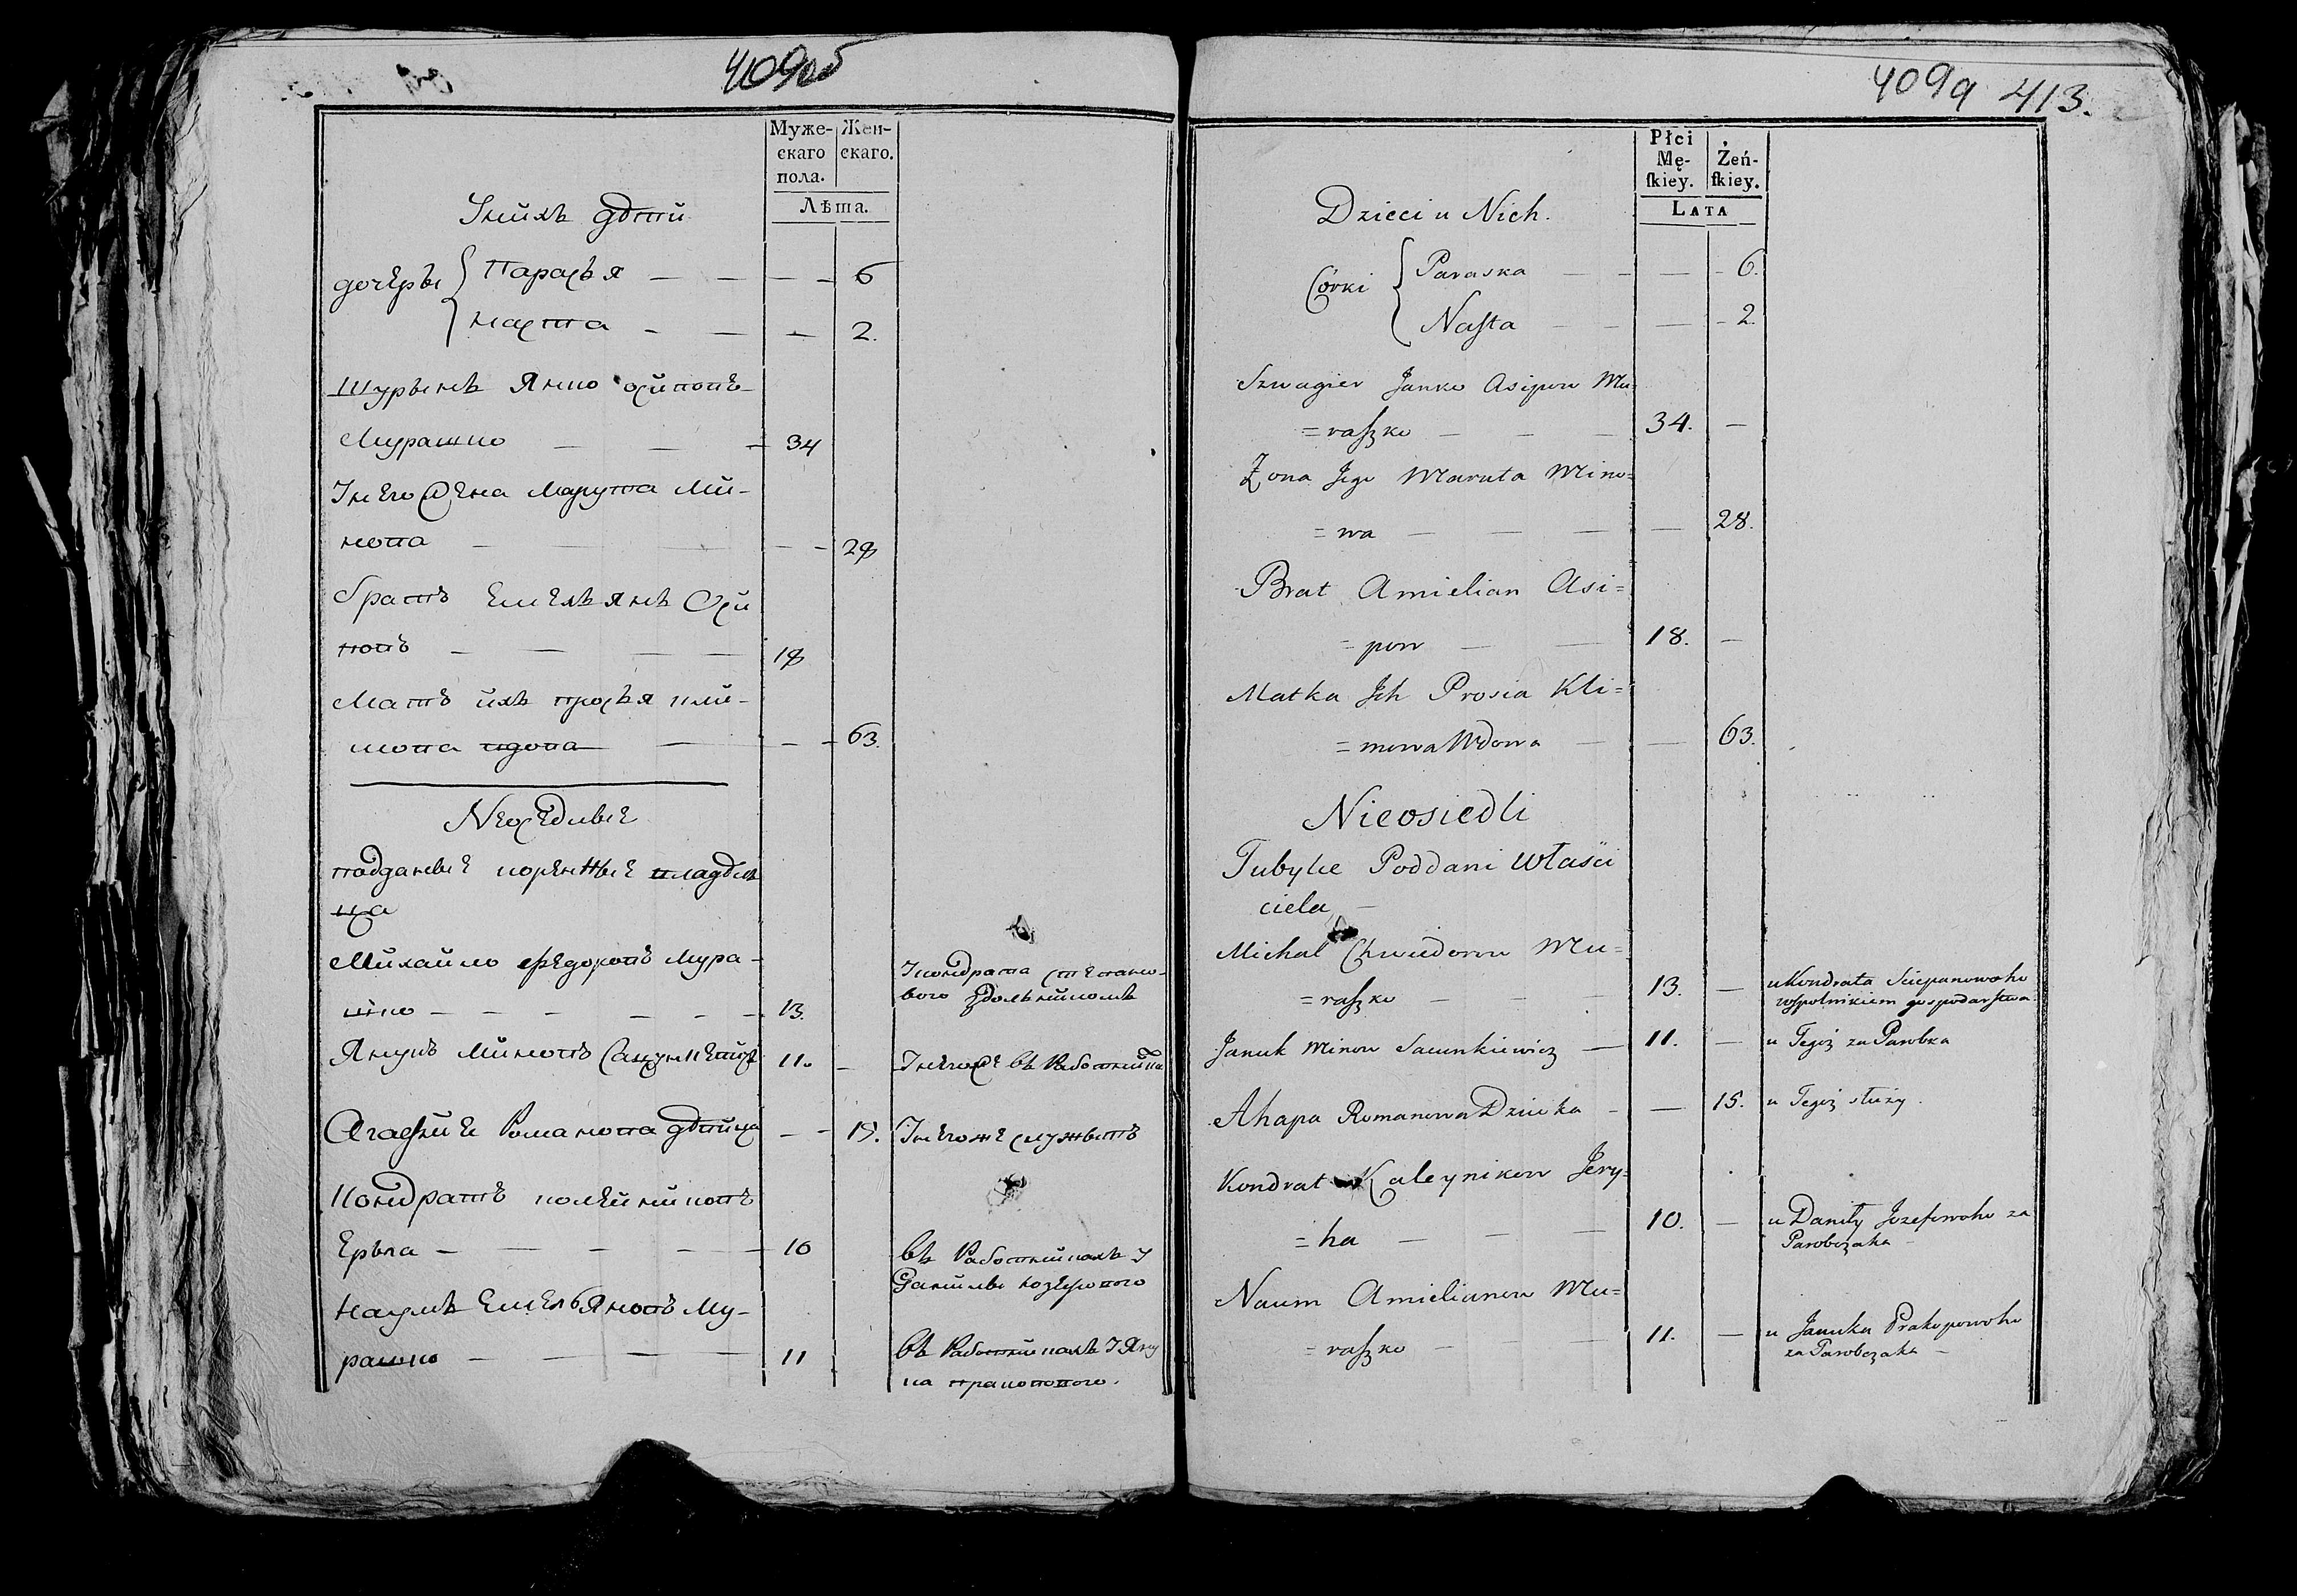 409об
Муже-
скаго
пола.
Жен-
скаго.
Лѣта.
Унихъ дѣти
дочеры
Парасья — — — — 6
Наста — — — 2.
Шурынъ Янко Осиповъ
Мурашко — — — 34
Унего жена Марута Ми-
нова — — — — — 28
братъ Емельянъ Оси
повъ — — — — 18
Мать ихъ Просья Кли-
мова вдова — — — 63.
Неоседлые
подданные коренные владель
ца
Михайло Федоровъ Мура-
шко — — — — — — 13.
Укондрата Степано-
вого здольникомъ
Янукъ Миновъ Сацункевичъ 11. —
Унегоже въ Работника
Агафия Романова девица — — 15.
Унегоже служытъ
Кондратъ Колейниковъ
Ерыга — — — — — 10
въ Работникахъ у
Данилы Юзефового
Наумъ Емельяновъ Му-
рашко — — — — — 11
въ Работникахъ у Яну
ка Пракопового.
409а 413.
Płci
Mę-
ſkiey.
Żeń-
ſkiey.
LATA
Dzieci u Nich.
Córki
Paraska — — — - 6.
Naſta — — — - 2.
Szwagier Janko Asipow Mu=
=raſzko — — — 34. —
Żona Jego Maruta Mino=
=wa — — — — 28.
Brat Amielian Asi=
=pow — — 18. —
Matka Jch Prosia Kli=
=mowa Wdowa — — 63.
Nieosiedli
Tubylce Poddani Właści
ciela —
Michał Chwiedorow Mu=
=raſzko — — — 13. —
u Kondrata Sciepanowoho
wſpolnikiem gospodarſtwa.
Januk Minow Sacunkiewicz — 11. —
u Tegoż za Parobka
Ahapa Romanowa Dziewka — — 15.
u Tegoż służy.
Kondrat Kaleynikow Jery=
=ha — — — 10. —
u Daniły Jozefowoho za
Parobczaka —
Naum Amielianow Mu=
=raſzko — — — 11. —
u Januka Prakopowoho
za Parobczaka —